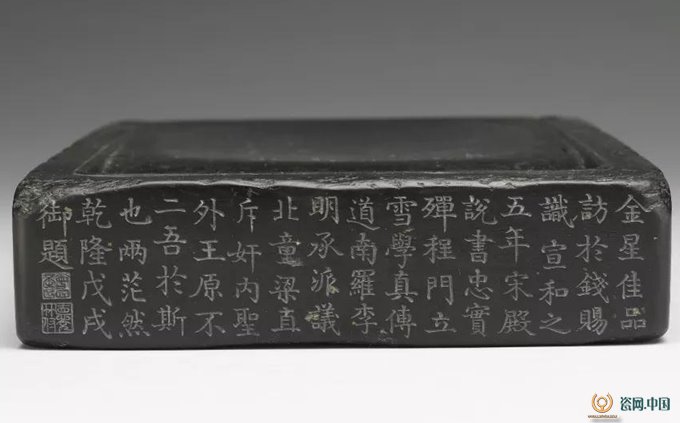 金星佳品
訪於錢賜
識宣和之
五年宋殿
說書忠實
殫程門立
雪學真傳
道南羅李
明承派議
北童梁直
斥奸內聖
外王原不
二吾於斯
也兩茫然
乾隆戊戌
御題
瓷网.中国